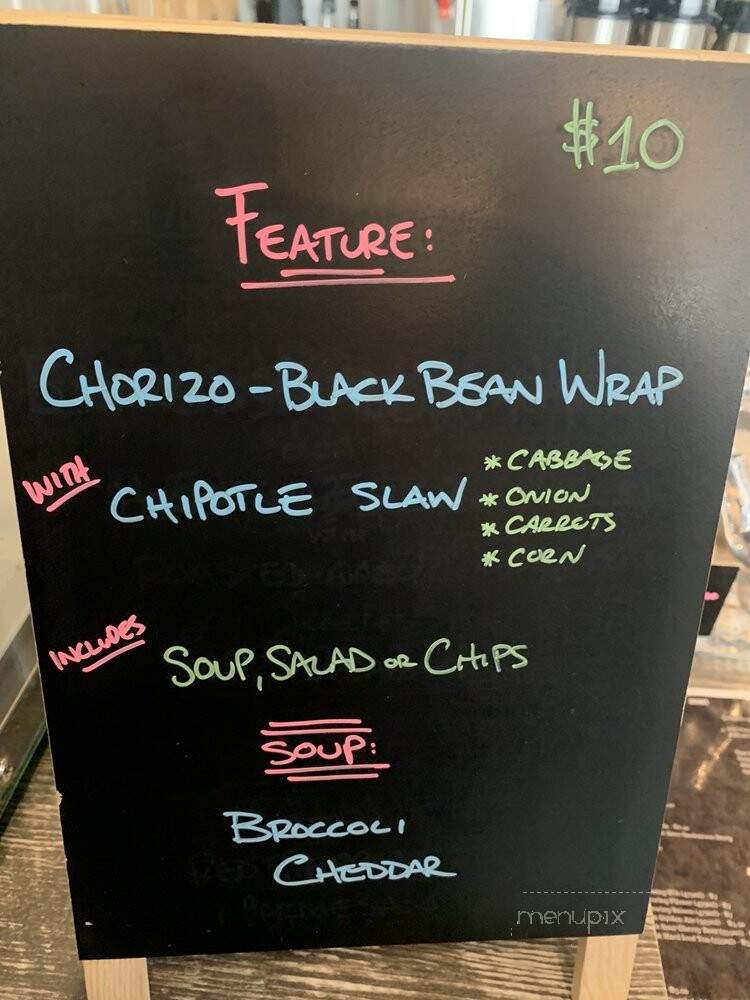 $10
FEATURE:
CHORIZO - BLACK BEAN WRAP
WITH CHIPOTLE SLAW
* CABBAGE
* ONION
* CARROTS
* CORN
INCLUDES SOUP, SALAD OR CHIPS
SOUP:
BROCCOLI
CHEDDAR
menupix